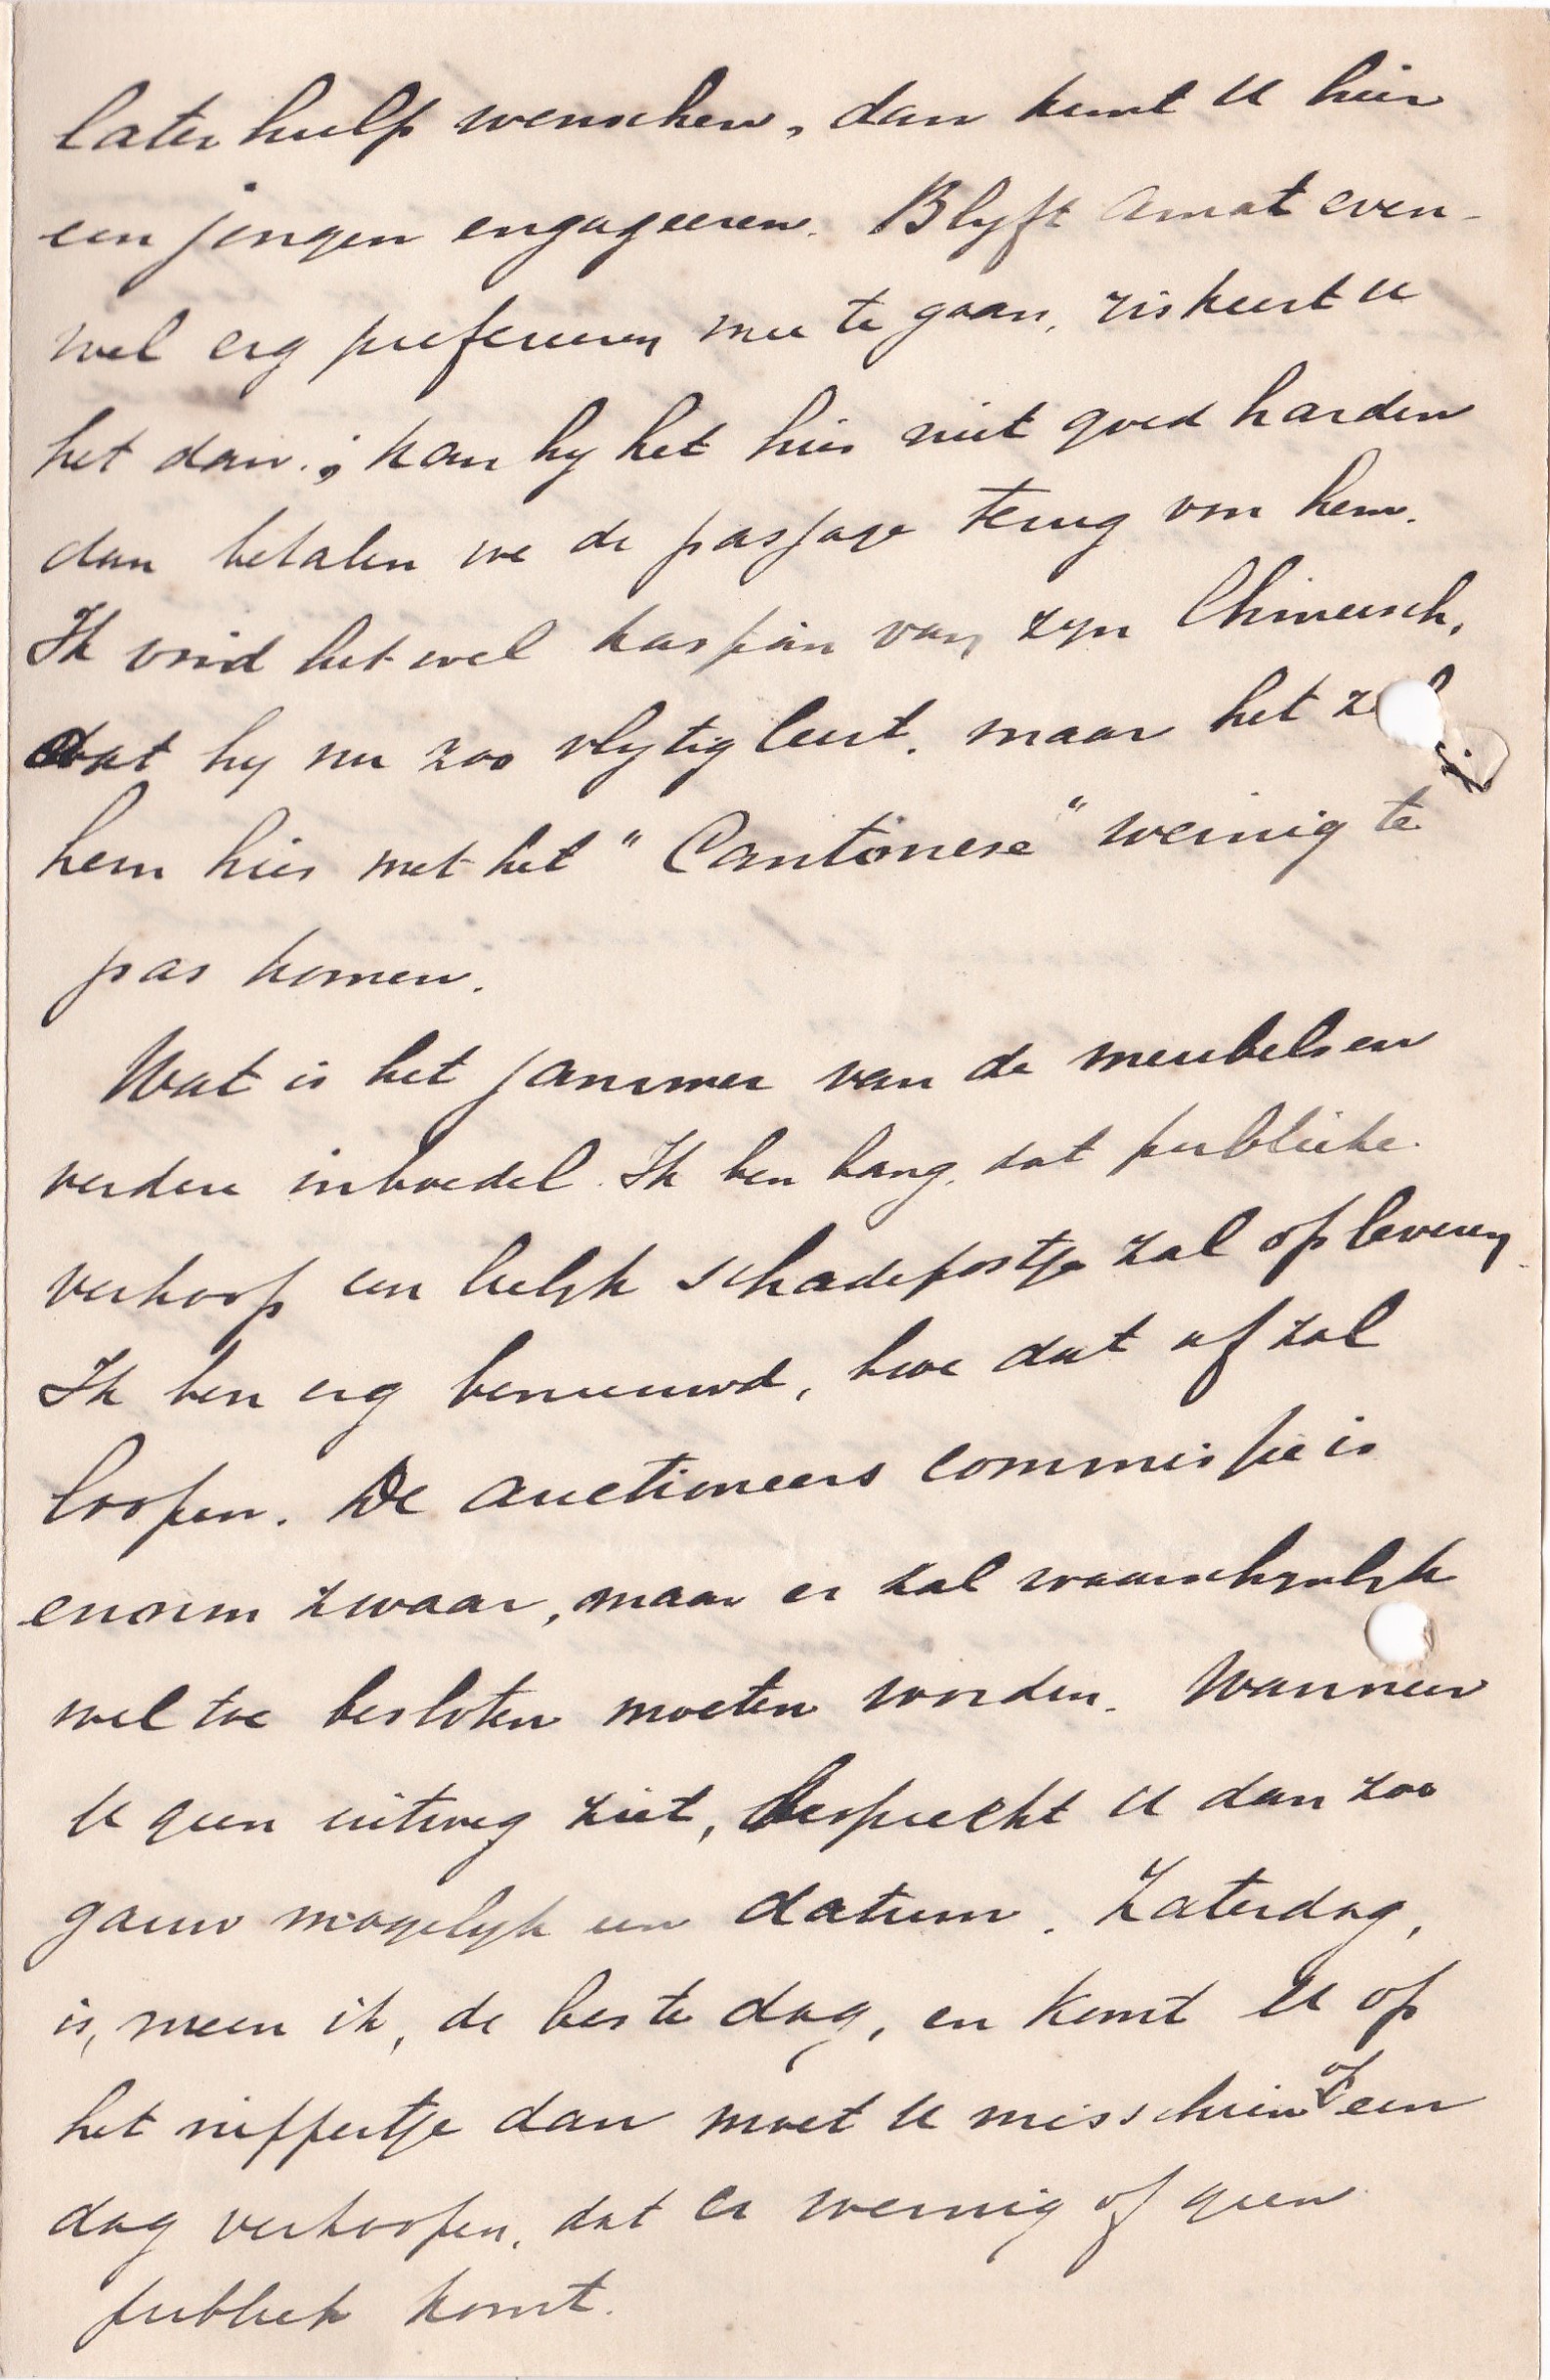 later hulp wenschen, dan kunt U hier
een jongen engageeren. Blyft Amat even-
wel erg prefereeren mee te gaan, riskeert U
het dan.; kan hy het hier niet goed harden
dan betalen we de passage terug von hem.
Ik vind het wel van zyn Chineesch,
dat hy nu zoo vlytig leert, maar het
hem hier met het "Cantonese" weinig te
pas komen.
Wat is het jammer van de meubels en
verdere inboedel. Ik ben bang, dat publieke
verkoop een leelyk schadepostje zal opleveren
Ik ben erg benieuwd, hoe dat af zal
loopen. De auctioneers commissie is
enorm zwaar, maar er zal waarschynlyk
wel toe besloten moeten worden. Wanneer
U geen uitweg ziet, bespreekt U dan zoo
gauw mogelyk een datum. Zaterdag,
is, meen ik, de beste dag, en komt U op
het nippertje dan moet U misschien op een
dag verkoopen, dat er weinig of geen
publiek komt.